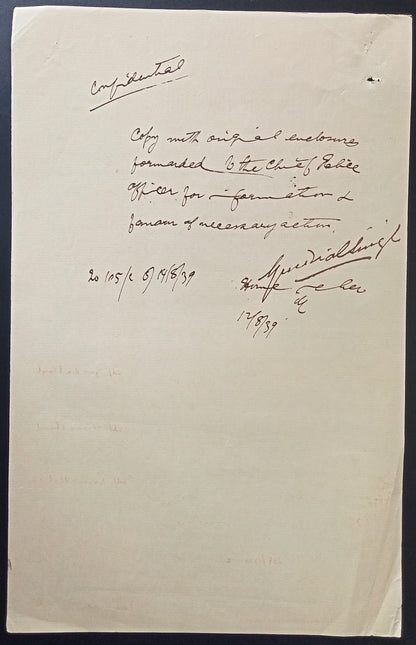 Confidential
Copy with original enclosure
forwarded to the Chief Police
Officer for information &
favour of necessary action.
Gurdial Singh
Home
12/8/39
20 105/c 14/8/39